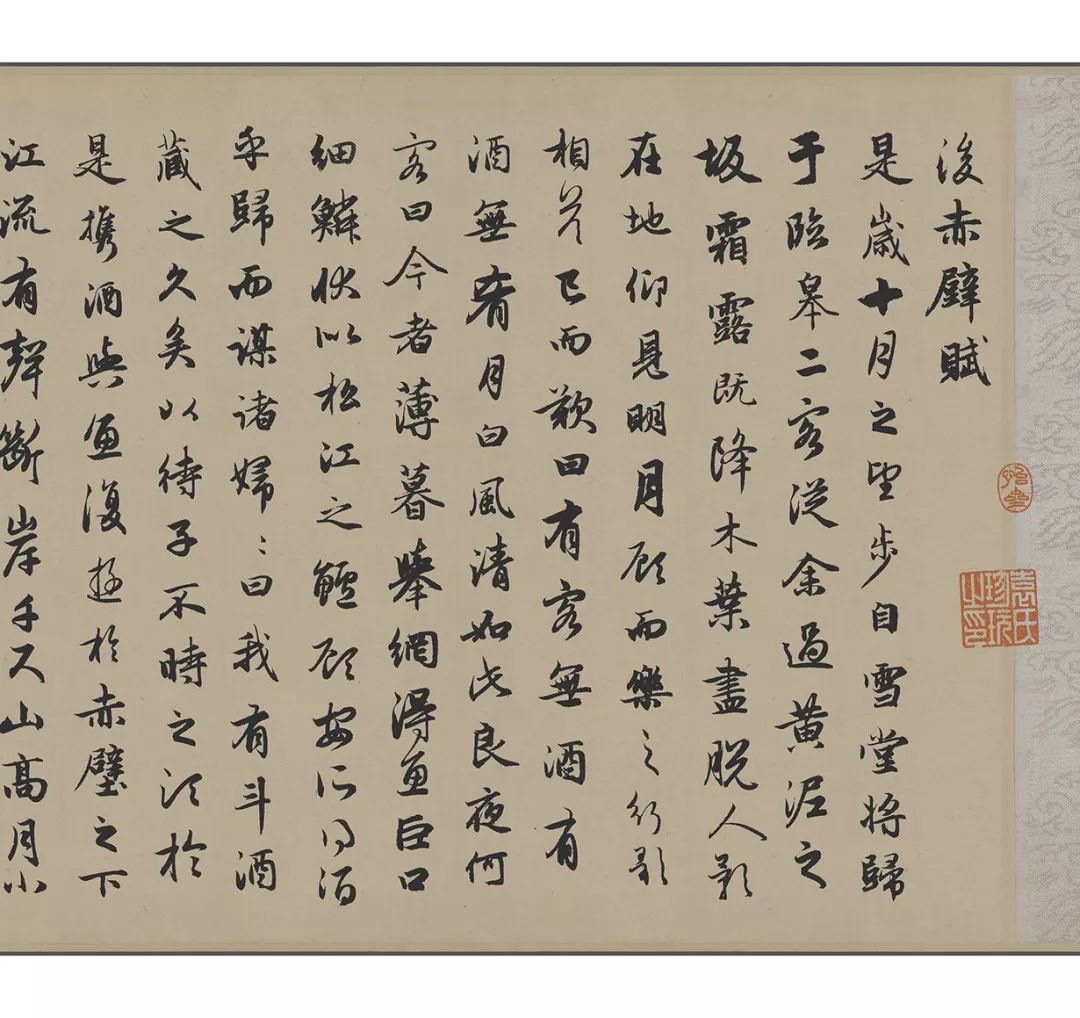 後赤壁賦
是歲十月之望步自雪堂將歸
于臨皋二客從余過黃泥之
坂霜露既降木葉盡脫人影
在地仰見明月顧而樂之行歌
相答已而歎曰有客無酒有
酒無肴月白風清如此良夜何
客曰今者薄暮舉網得魚巨口
細鱗狀似松江之鱸顧安所得酒
乎歸而謀諸婦〻曰我有斗酒
藏之久矣以待子不時之須於
是攜酒與魚復遊於赤壁之下
江流有聲斷岸千尺山高月小
袁氏珍玩之印